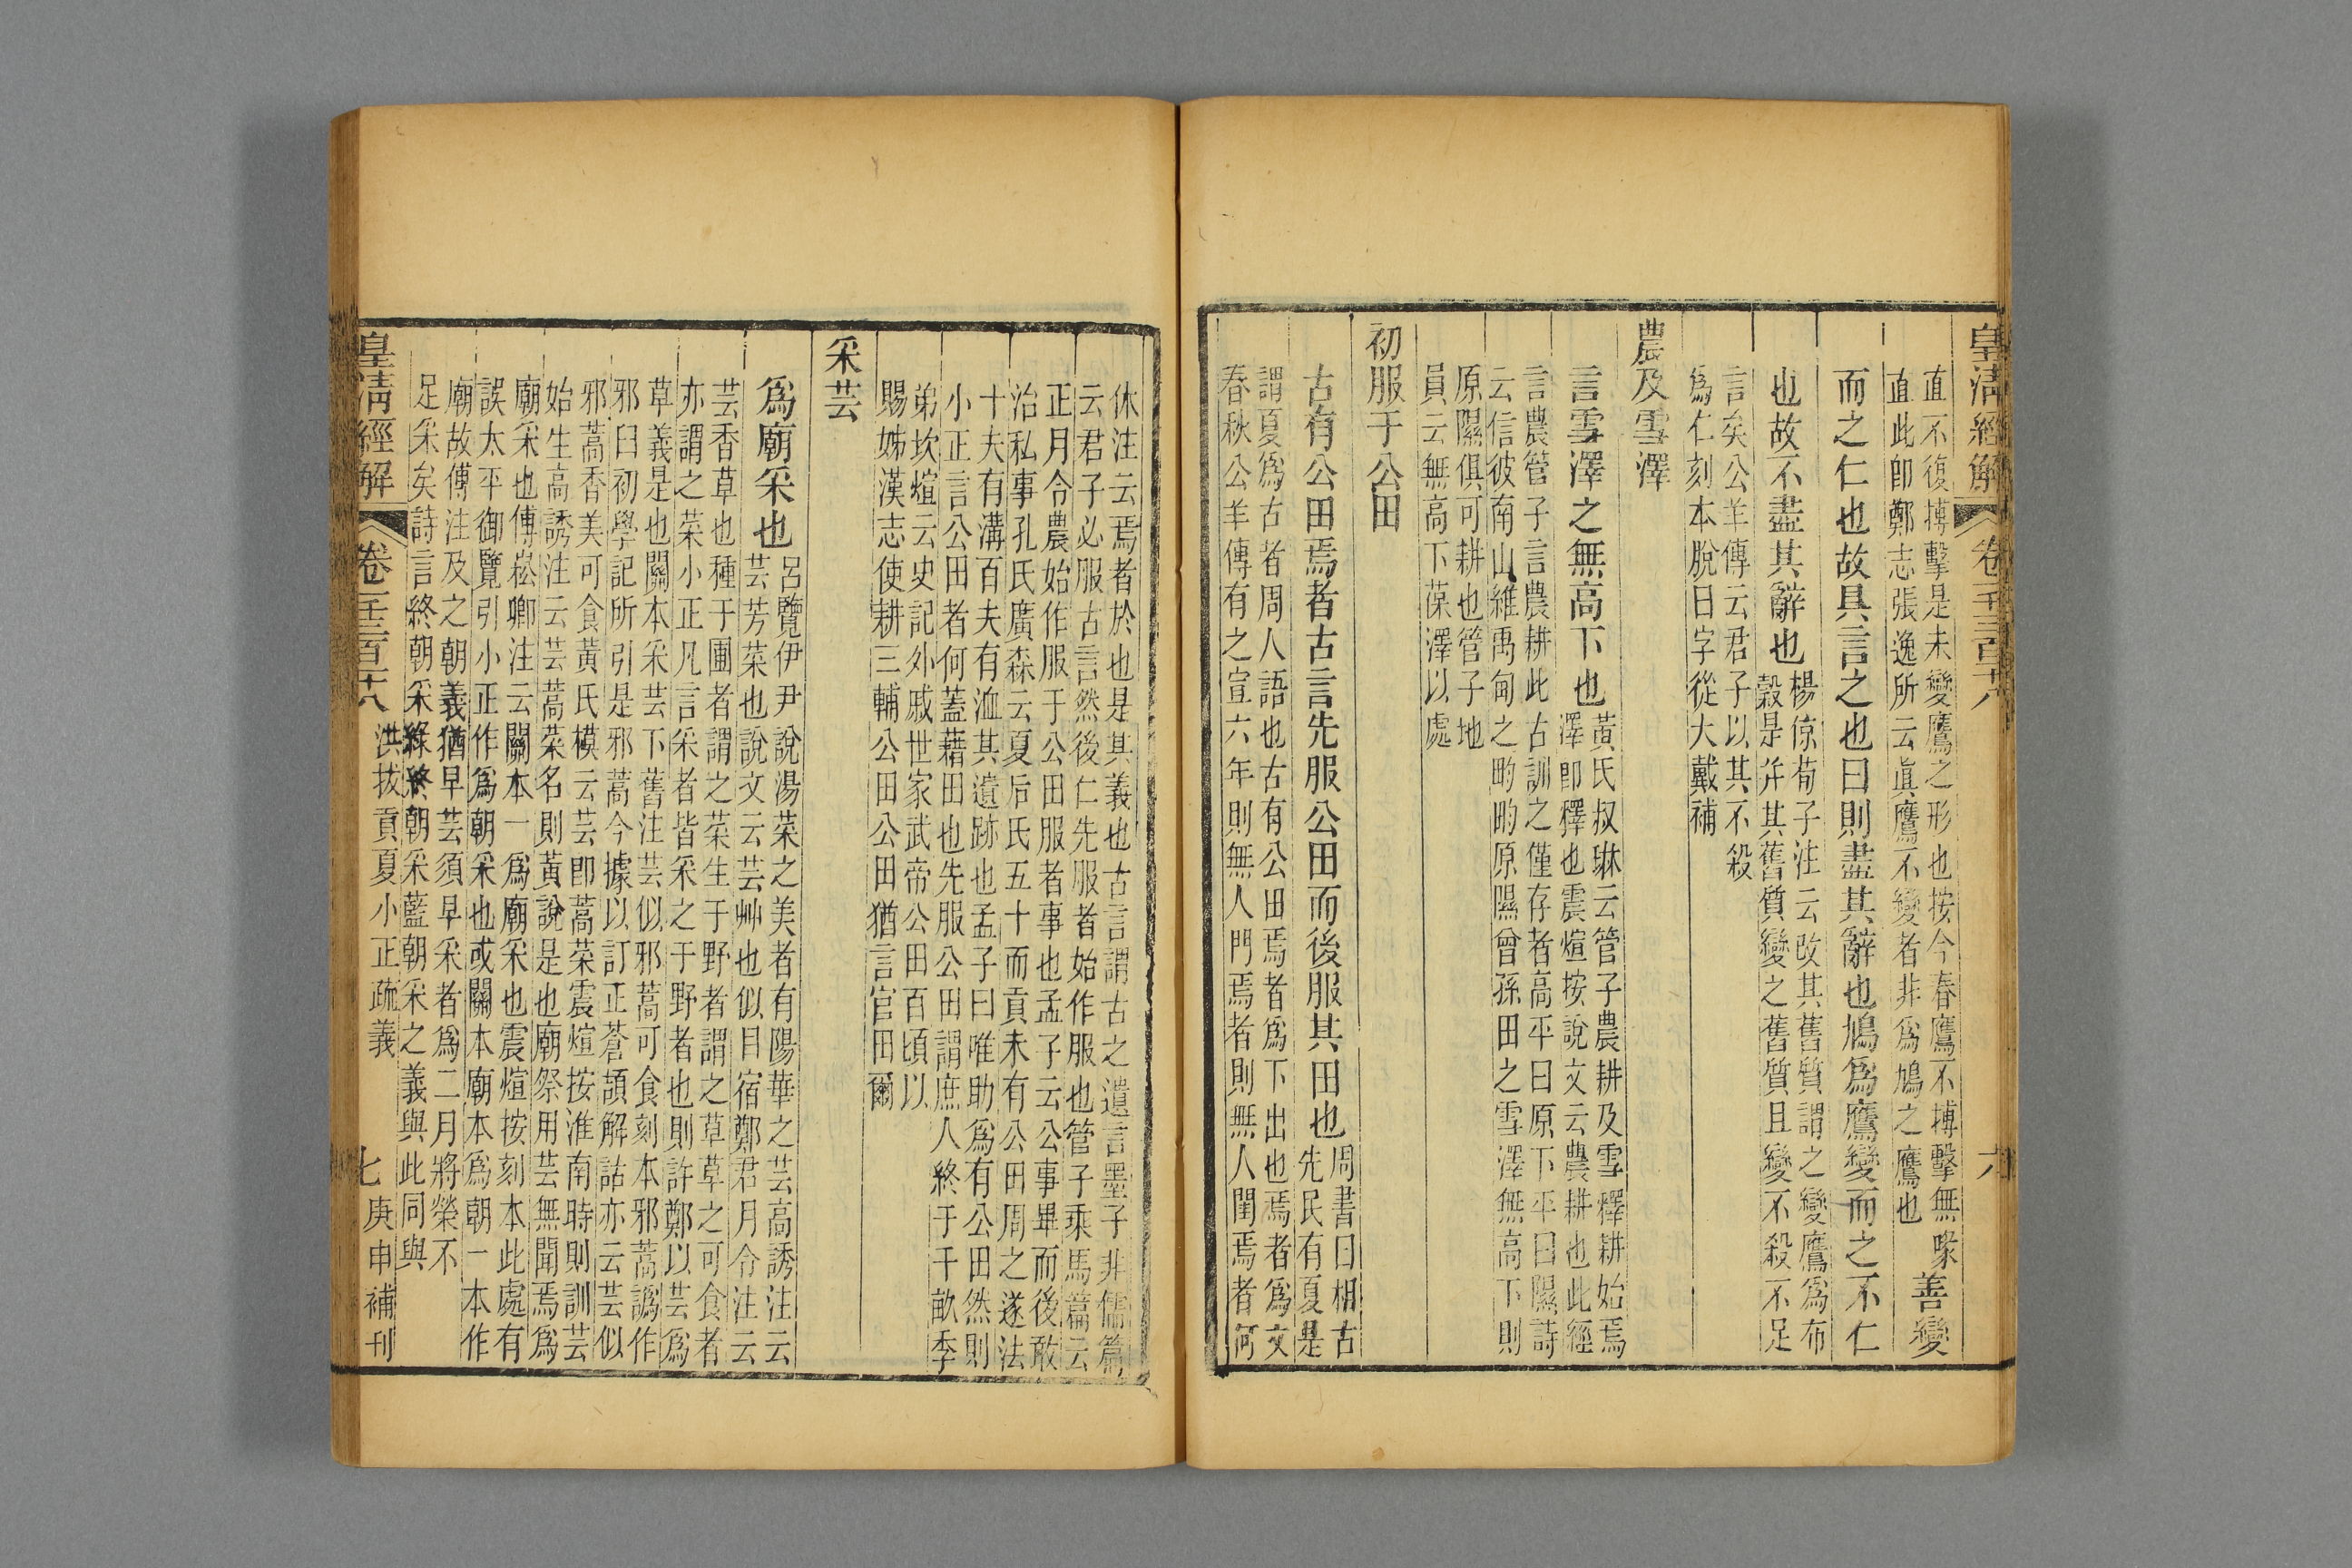 皇清經解 卷一千三百十八 六
直不復摶擊是未變鷹之形也按今春鷹不摶擊無喙
直此卽鄭志張逸所云眞鷹不變者非爲鳩之鷹也
善變
而之仁也故具言之也曰則盡其辭也鳩爲鷹變而之不仁
也故不盡其辭也
楊倞荀子注云改其舊質謂之變鷹爲布
穀是幷其舊質變之舊質且變不殺不足
言矣公羊傳云君子以其不殺
爲仁刻本脫曰字從大戴補
農及雪澤
言雪澤之無高下也
黃氏叔琳云管子農耕及雪釋耕始焉
澤卽釋也震煊按說文云農耕也此經
言農管子言農耕此古訓之僅存者高平曰原下平曰隰詩
云信彼南山維禹甸之畇畇原隰曾孫田之雪澤無高下則
原隰俱可耕也管子地
員云無高下葆澤以處
初服于公田
古有公田焉者古言先服公田而後服其田也
周書曰相古
先民有夏是
謂夏爲古者周人語也古有公田焉者爲下出也焉者爲文
春秋公羊傳有之宣六年則無人門焉者則無人閨焉者何
休注云焉者於也是其義也古言謂古之遺言墨子非儒篇
云君子必服古言然後仁先服者始作服也管子乘馬篇云
正月令農始作服于公田服者事也孟子云公事畢而後敢
治私事孔氏廣森云夏后氏五十而貢未有公田周之遂法
十夫有溝百夫有洫其遺跡也孟子曰唯助爲有公田然則
小正言公田者何蓋藉田也先服公田謂庶人終于千畝季
弟坎煊云史記外戚世家武帝公田百頃以
賜姊漢志使耕三輔公田公田猶言官田爾
采芸
爲廟采也
呂覽伊尹說湯菜之美者有陽華之芸高誘注云
芸芳菜也說文云芸艸也似目宿鄭君月令注云
芸香草也種于圃者謂之菜生于野者謂之草草之可食者
亦謂之菜小正凡言采者皆采之于野者也則許鄭以芸爲
草義是也關本采芸下舊注芸似邪蒿可食刻本邪蒿譌作
邪臼初學記所引是邪蒿今據以訂正蒼頡解詁亦云芸似
邪蒿香美可食黃氏模云芸卽蒿菜震煊按淮南時則訓芸
始生高誘注云芸蒿菜名則黃說是也廟祭用芸無聞焉爲
廟采也傅崧卿注云關本一爲廟采也震煊按刻本此處有
誤太平御覽引小正作爲朝采也或關本廟本爲朝一本作
廟故傅注及之朝義猶早芸須早采者爲二月將榮不
足采矣詩言終朝采綠終朝采藍朝采之義與此同與
皇清經解 卷一千三百十八 洪拔貢夏小正疏義 七 庚申補刊